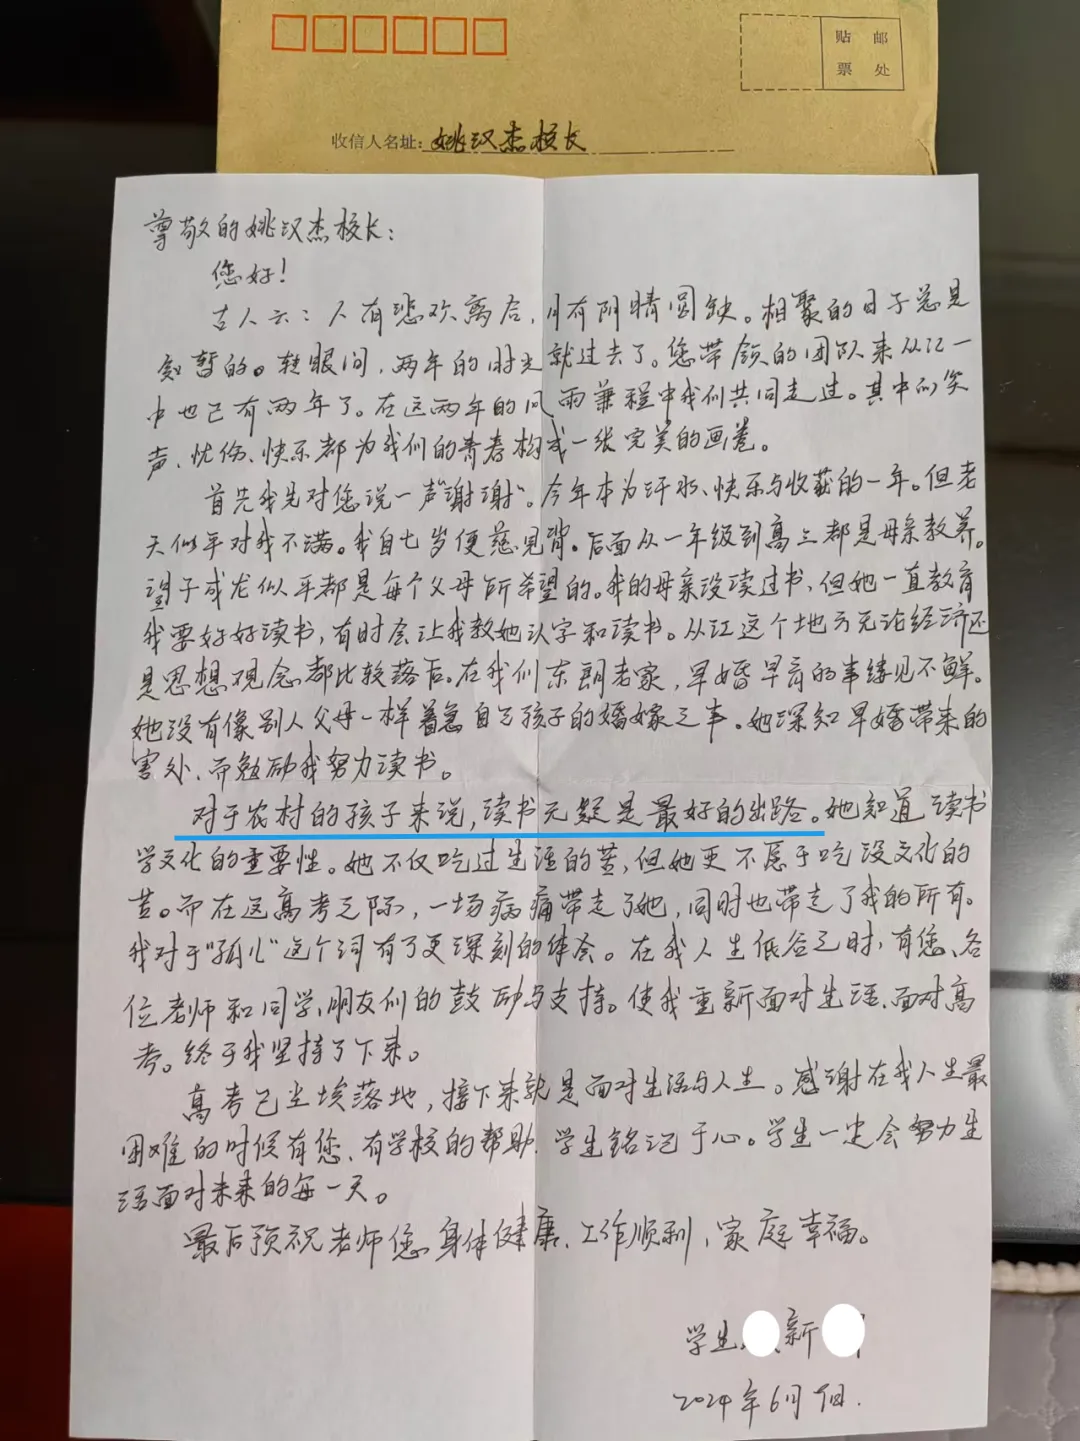 贴 邮
票 处
收信人名址: 姚汉杰校长
尊敬的姚汉杰校长:
您好!
古人云: 人有悲欢离合, 月有阴晴圆缺。相聚的日子总是
短暂的。转眼间, 两年的时光就过去了。您带领的团队来从江一
中也已有两年了。在这两年的风雨兼程中我们共同走过。其中的笑
声、忧伤、快乐都为我们的青春构成一张完美的画卷。
首先我先对您说一声"谢谢"。今年本为汗水、快乐与收获的一年。但老
天似乎对我不满。我自七岁便慈见背。后面从一年级到高三都是母亲教养。
望子成龙似乎都是每个父母所希望的。我的母亲没读过书, 但她一直教育
我要好好读书, 有时会让我教她认字和读书。从江这个地方无论经济还
是思想观念都比较落后。在我们东朗老家, 早婚早育的事缕见不鲜。
她没有像别人父母一样着急自己孩子的婚嫁之事。她深知早婚带来的
害处、而勉励我努力读书。
对于农村的孩子来说, 读书无疑是最好的出路。她知道读书
学文化的重要性。她不仅吃过生活的苦, 但她更不愿于吃没文化的
苦。而在这高考之际, 一场病痛带走了她, 同时也带走了我的所有。
我对于"孤儿"这个词有了更深刻的体会。在我人生低谷之时, 有您、各
位老师和同学、朋友们的鼓励与支持。使我重新面对生活、面对高
考。终于我坚持了下来。
高考已尘埃落地, 接下来就是面对生活与人生。感谢在我人生最
困难的时候有您、有学校的帮助、学生铭记于心。学生一定会努力生
活面对未来的每一天。
最后预祝老师您身体健康、工作顺利、家庭幸福。
学生 新
2024年6月 日.